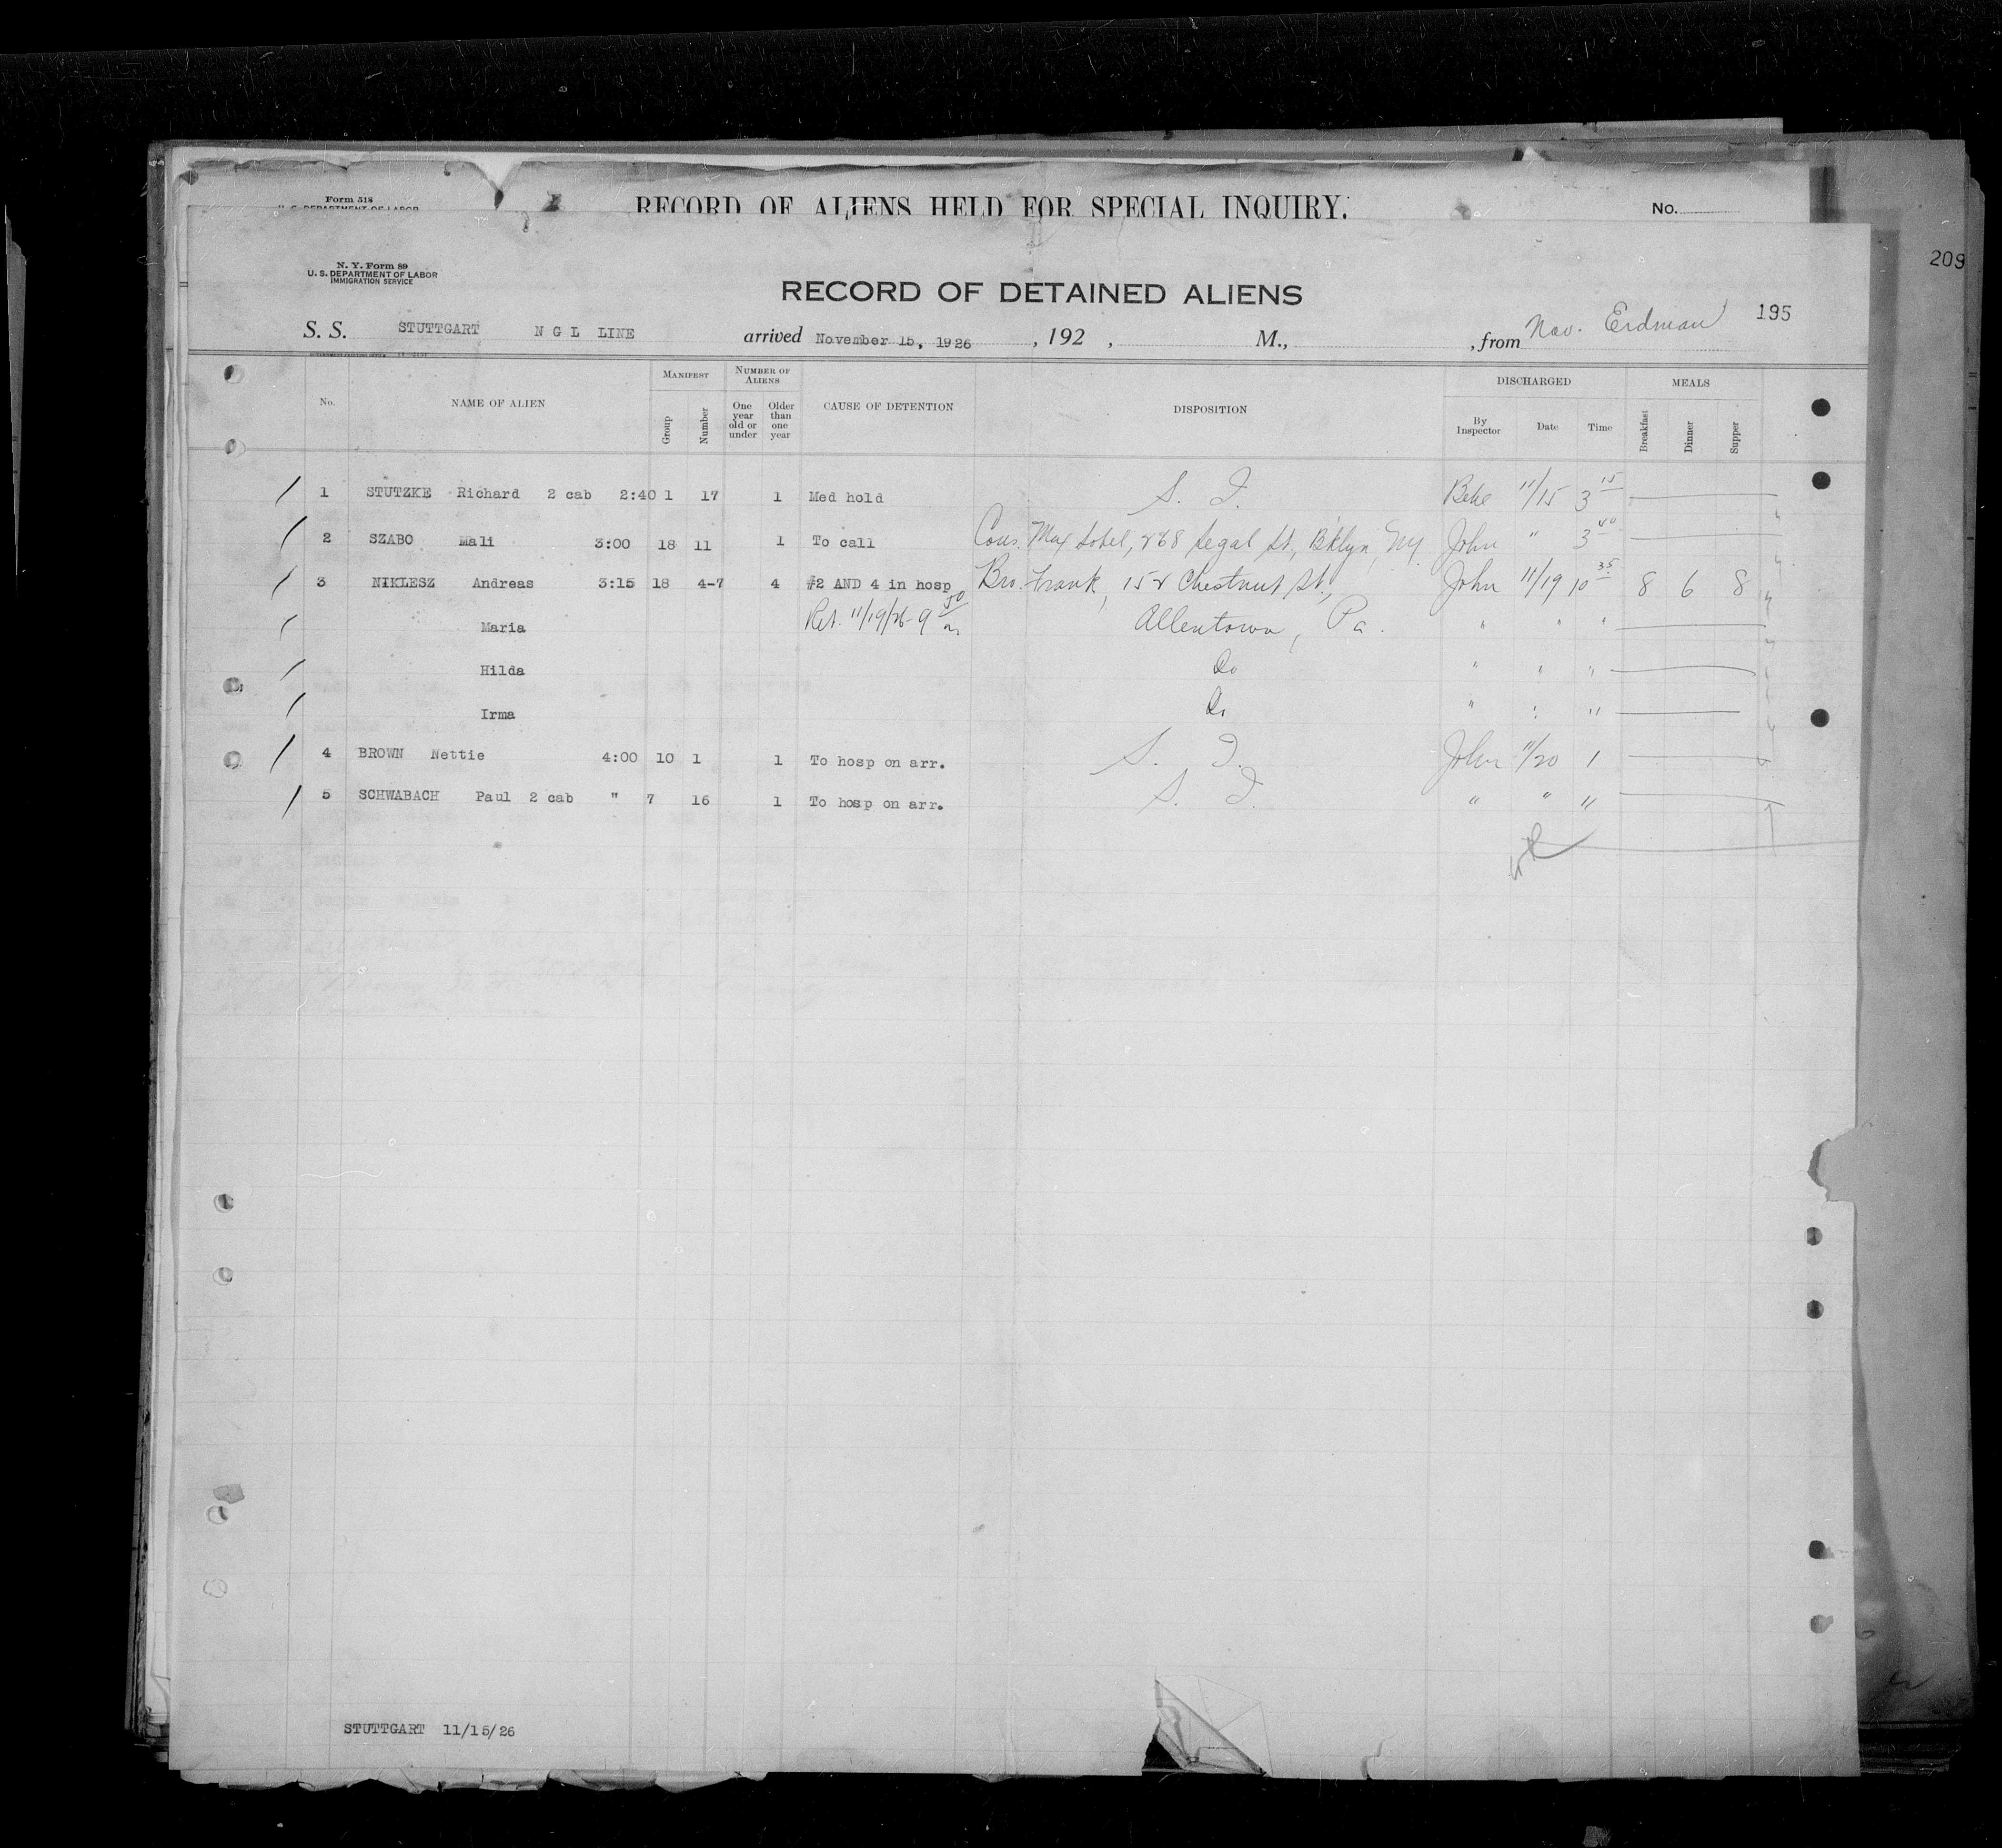 Form 518
U. S. DEPARTMENT OF LABOR
RECORD OF ALIENS HELD FOR SPECIAL INQUIRY.
No.
209
N. Y. Form 89
U. S. DEPARTMENT OF LABOR
IMMIGRATION SERVICE
RECORD OF DETAINED ALIENS
195
S. S. STUTTGART N G L LINE arrived November 15, 1926, 192 , M., , from Nov. Erdman
No. NAME OF ALIEN MANIFEST Group Number NUMBER OF ALIENS One year old or under Older than one year CAUSE OF DETENTION DISPOSITION DISCHARGED By Inspector Date Time MEALS Breakfast Dinner Supper
1 STUTZKE Richard 2 cab 2:40 1 17 1 Med hold S. I. 11/15 3 15
2 SZABO Mali 3:00 18 11 1 To call Cous. Max Sobel, 268 Segal St., B'klyn, NY John " 3 40
3 NIKLESZ Andreas 3:15 18 4-7 4 #2 AND 4 in hosp Bro. Frank, 152 Chestnut St., John 11/19 10 35 8 6 8
Maria Ret. 11/19/26 - 9 50 Allentown, Pa. " " "
Hilda Do " " "
Irma Do " " "
4 BROWN Nettie 4:00 10 1 1 To hosp on arr. S. I. John 11/20 1
5 SCHWABACH Paul 2 cab " 7 16 1 To hosp on arr. S. I. " " "
STUTTGART 11/15/26